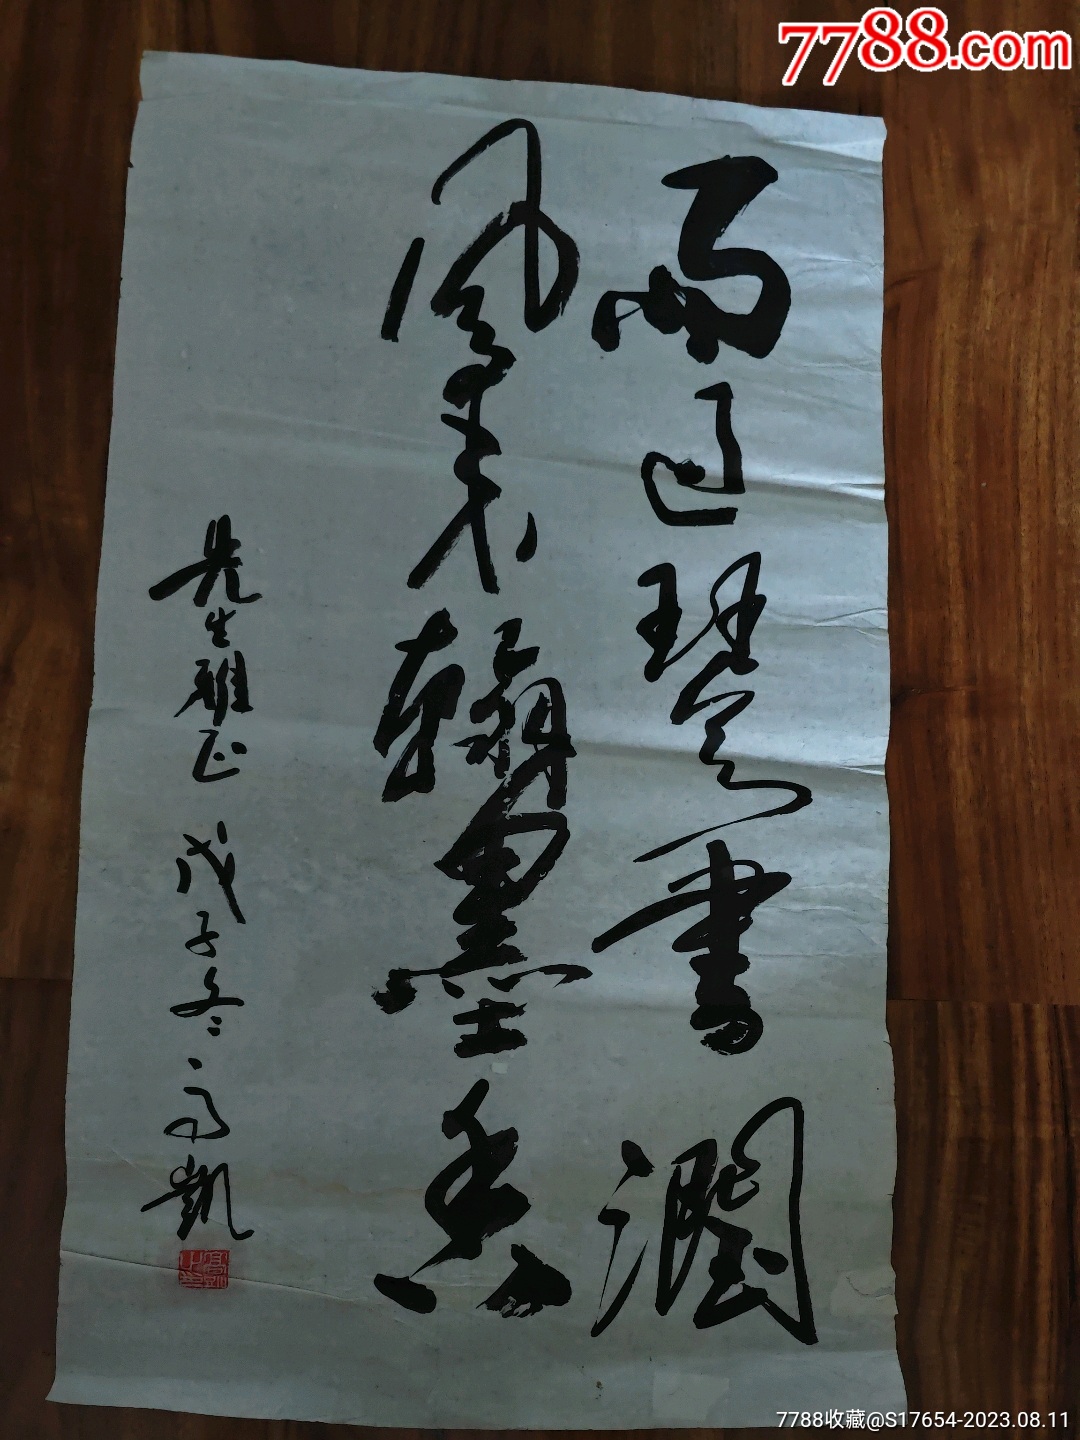 7788.com
雨过琴书润
风来翰墨香
先生雅正 戊子冬 高凯
7788收藏@S17654-2023.08.11